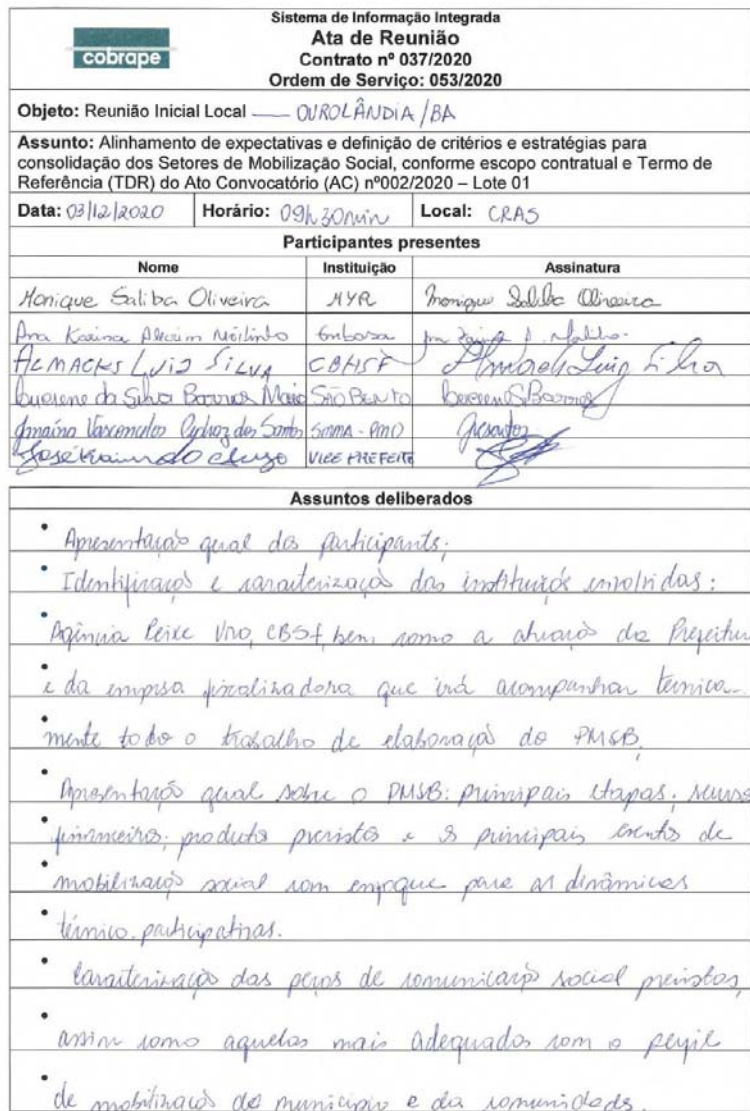 cobrape
Sistema de Informação Integrada
Ata de Reunião
Contrato nº 037/2020
Ordem de Serviço: 053/2020
Objeto: Reunião Inicial Local — OUROLÂNDIA/BA
Assunto: Alinhamento de expectativas e definição de critérios e estratégias para
consolidação dos Setores de Mobilização Social, conforme escopo contratual e Termo de
Referência (TDR) do Ato Convocatório (AC) nº002/2020 – Lote 01
Data: 03/12/2020 Horário: 09h30min Local: CRAS
Participantes presentes
Nome Instituição Assinatura
Monique Saliba Oliveira MYR Monique Saliba Oliveira
Ana Karina Embasa
ALMACKS LUIZ SILVA CBHSF Almacks Luiz Silva
da Silva Barros SÃO BENTO Barros
Janaína Vasconcelos dos Santos SEMMA - PMO
José Raimundo VICE PREFEITO
Assuntos deliberados
• Apresentação geral dos participantes;
• Identificação e caracterização das instituições envolvidas:
• Agência Peixe Vivo, CBSF, bem como a atuação da Prefeitura
• e da empresa fiscalizadora que irá acompanhar tecnica-
• mente todo o trabalho de elaboração do PMSB.
• Apresentação geral sobre o PMSB: principais etapas;
• financeiros; produtos previstos e os principais eventos de
• mobilização social com enfoque para as dinâmicas
• técnico-participativas.
• Caracterização das peças de comunicação social previstas,
• assim como aquelas mais adequados com o perfil
• de mobilização do município e da comunidade.